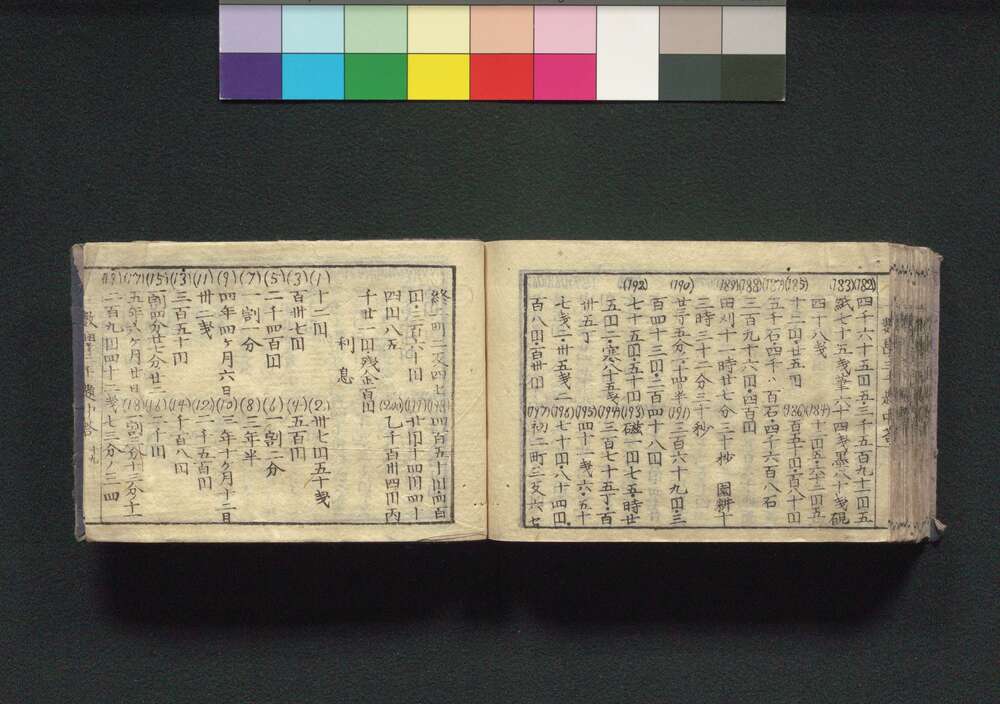 (182)四千六十五円五三千五百九十二円五
(183)紙七十五戋筆六十四戋墨六十戋硯
四十八戋 (184)十四五・六十二円五
(185)十二円・廿五円 (186)百五十円・百八十四
(187)五千石四千八百石四千六百八石
(188)三百九十六円・四百円
(189)田刈十一時廿七分三十抄 園耕十
三時三十二分三十秒
(190)廿寸五分・十四半 (191)三百六十九円・三
百四十三円二百四十八円
(192)七十五円・五十円 (193)磁一円七五・時廿
五円・寒八十五戋 (194)三百七十五丁・百
卅五丁 (195)四十二戋・六・五十
七戋二・卅五戋二 (196)七十円・八十四円・
百八円・百卅円 (197)初二町三又六七
終二町二又四七 (198)四百五十円・四百
円・三百六十円 (199)廿円・十四円・四十
四円八五 (200)乙千百卅四円内
千廿一円残金百円
利息
(1)十二円 (2)卅七円五十戋
(3)百卅七円 (4)五百円
(5)二千四百円 (6)一割二分
(7)一割一分 (8)三年半
(9)四年四ヶ月六日 (10)三年十ヶ月十二日
(11)卅二戋 (12)二千五百円
(13)三百五十円 (14)千百八円
(15)一割四分廿七分廿二 (16)二千円
(17)五年弐ヶ月廿日 (18)一割二分十二分十一
(19)二百九円四十二戋七三分ノ三四